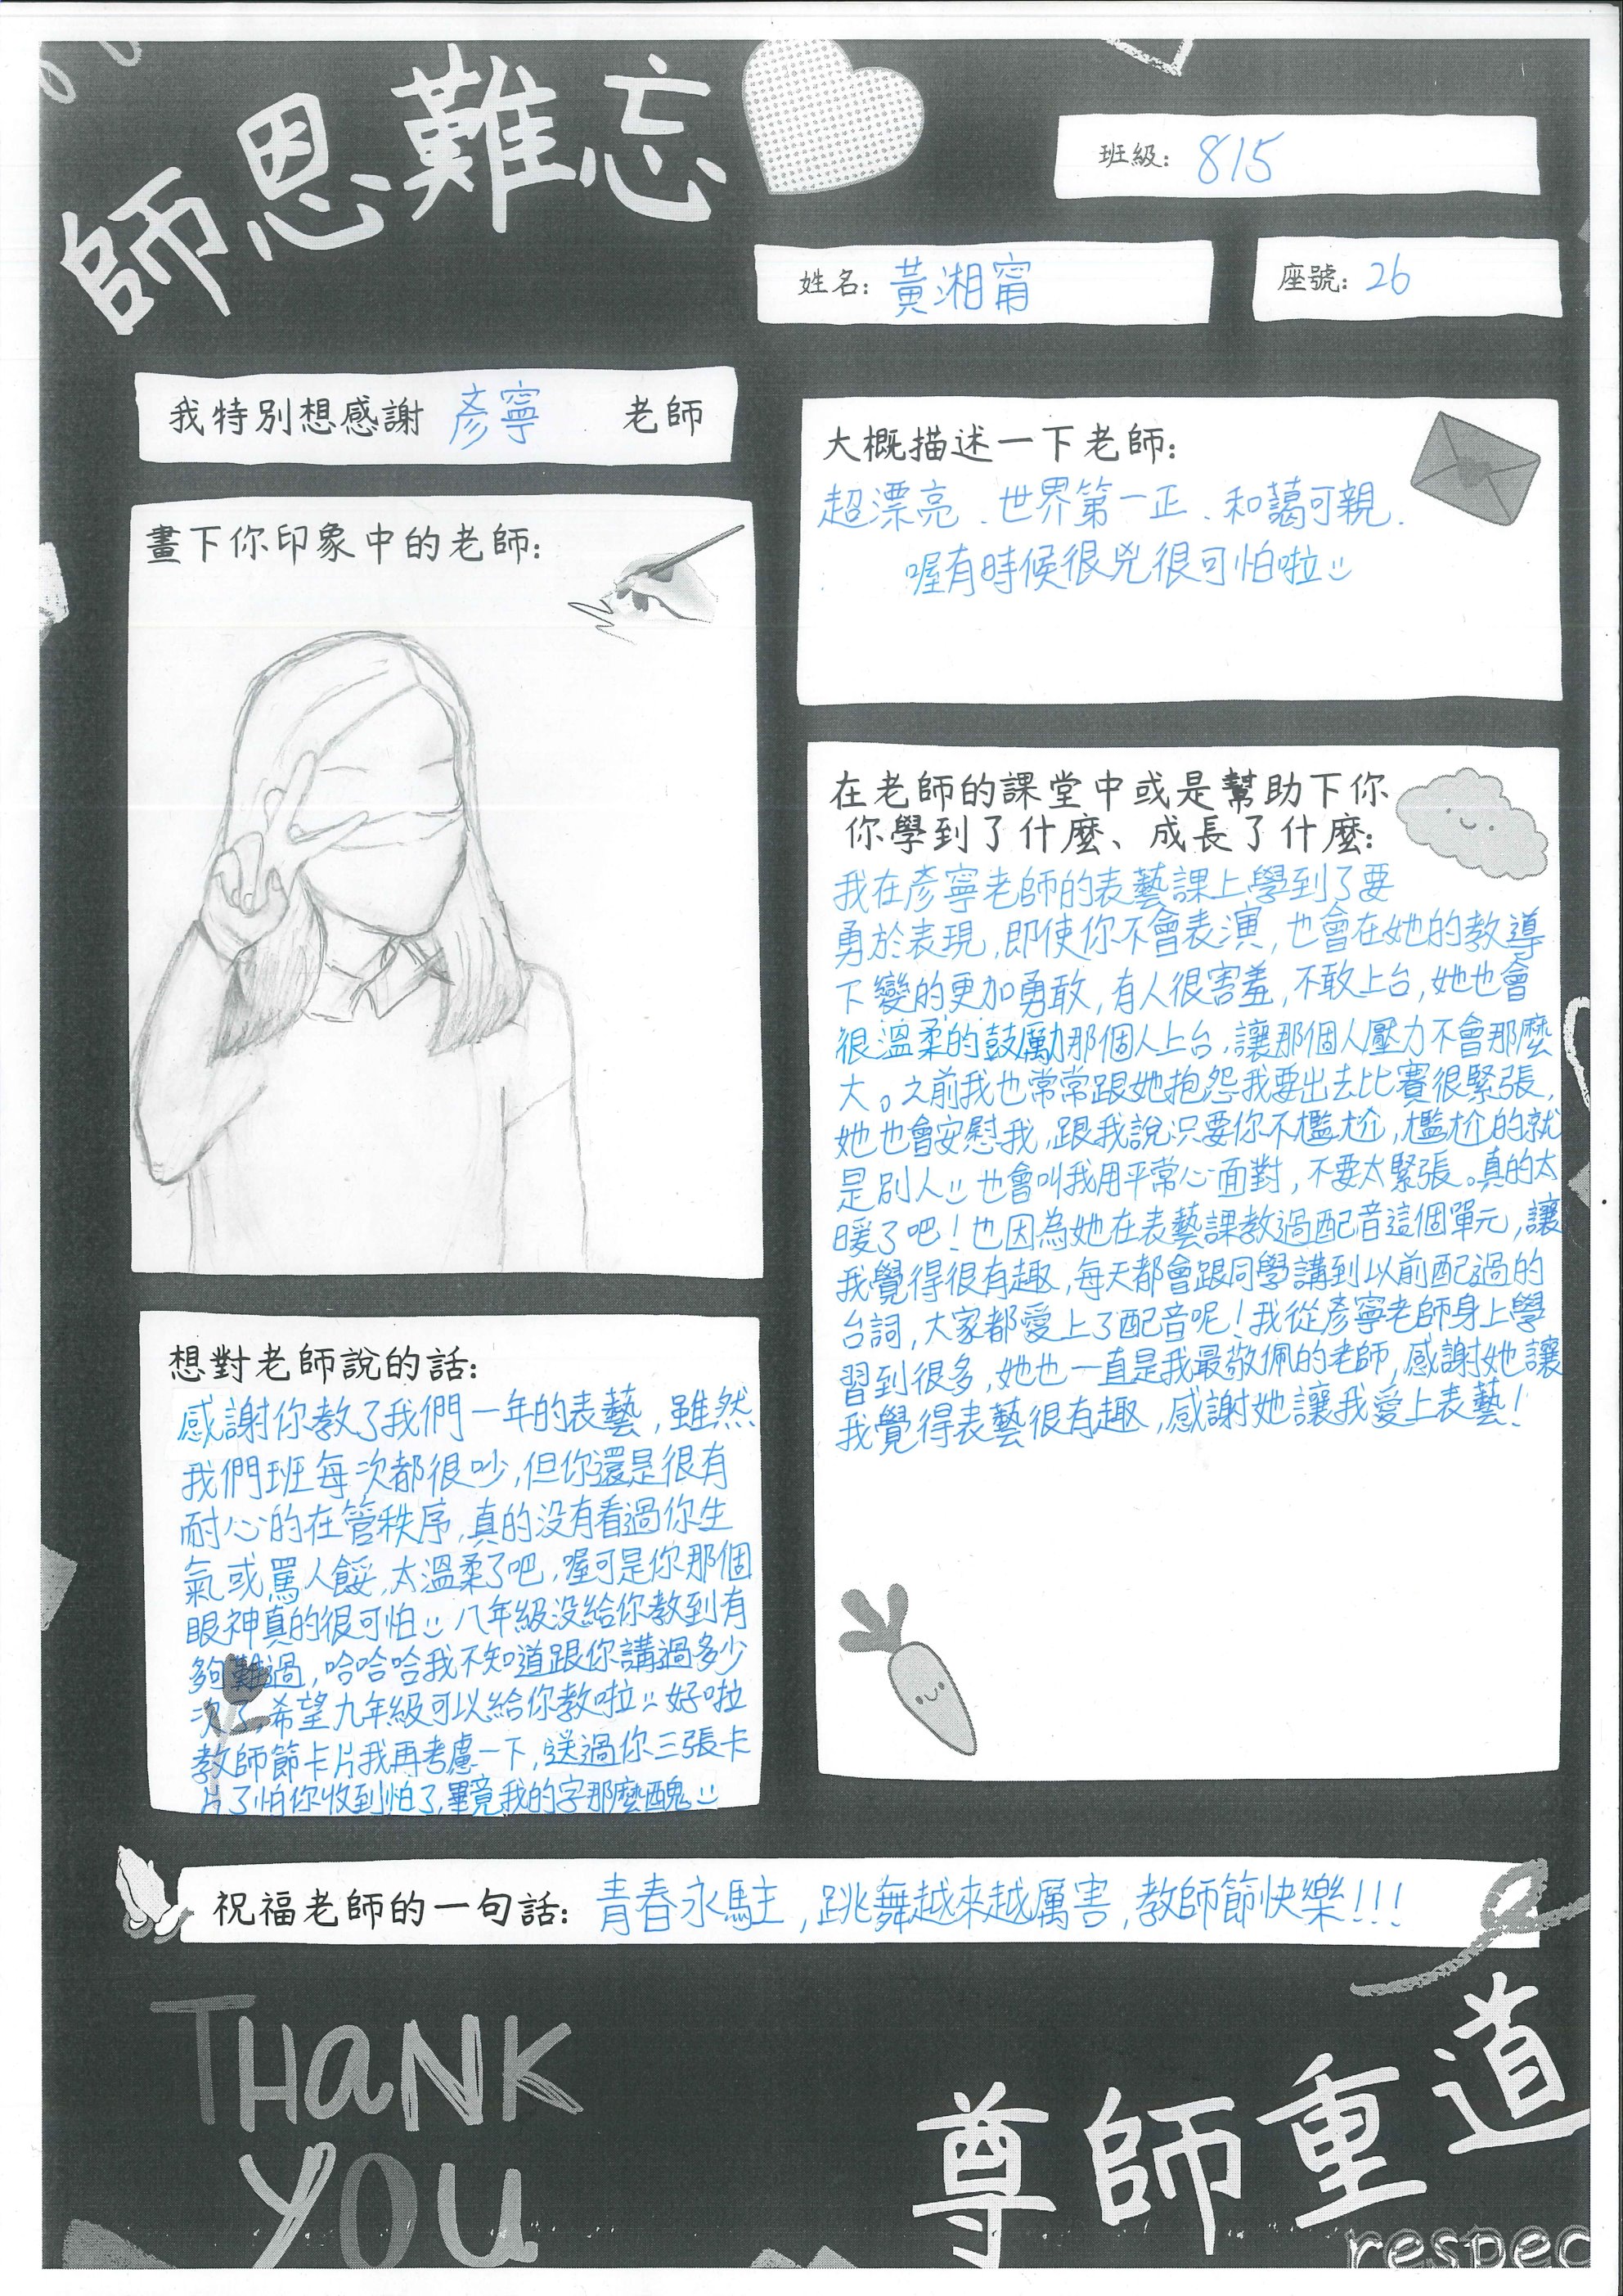 師恩難忘
班級: 815
姓名: 黃湘甯
座號: 26
我特別想感謝 彥寧 老師
畫下你印象中的老師:
大概描述一下老師:
超漂亮、世界第一正、和藹可親、
喔有時候很兇很可怕啦
在老師的課堂中或是幫助下你
你學到了什麼、成長了什麼:
我在彥寧老師的表藝課上學到了要
勇於表現,即使你不會表演,也會在她的教導
下變的更加勇敢,有人很害羞,不敢上台,她也會
很溫柔的鼓勵那個人上台,讓那個人壓力不會那麼
大。之前我也常常跟她抱怨我要出去比賽很緊張,
她也會安慰我,跟我說只要你不尷尬,尷尬的就
是別人 也會叫我用平常心面對,不要太緊張。真的太
暖了吧!也因為她在表藝課教過配音這個單元,讓
我覺得很有趣,每天都會跟同學講到以前配過的
台詞,大家都愛上了配音呢!我從彥寧老師身上學
習到很多,她也一直是我最敬佩的老師,感謝她讓
我覺得表藝很有趣,感謝她讓我愛上表藝!
想對老師說的話:
感謝你教了我們一年的表藝,雖然
我們班每次都很吵,但你還是很有
耐心的在管秩序,真的沒有看過你生
氣或罵人餒,太溫柔了吧,喔可是你那個
眼神真的很可怕 八年級沒給你教到有
夠難過,哈哈哈我不知道跟你講過多少
次了,希望九年級可以給你教啦 好啦
教師節卡片我再考慮一下,送過你三張卡
片了怕你收到怕了,畢竟我的字那麼醜
祝福老師的一句話: 青春永駐,跳舞越來越厲害,教師節快樂!!!
THANK
YOU
尊師重道
respec